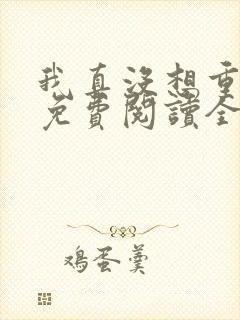 我真没想重
免费閱讀全
鸡蛋羹